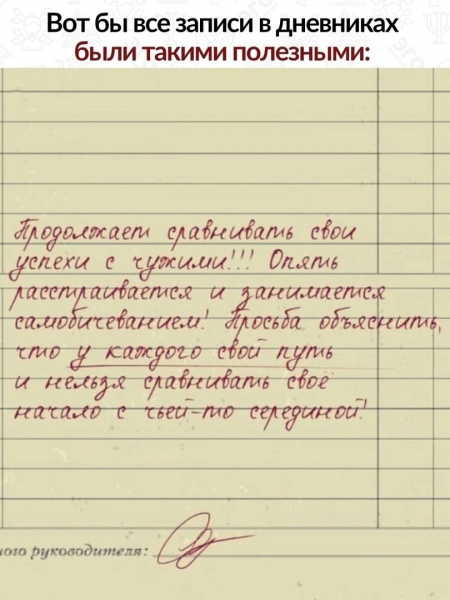 Вот бы все записи в дневниках
были такими полезными:
Продолжает сравнивать свои
успехи с чужими!!! Опять
расстраивается и занимается
самобичеванием! Просьба объяснить,
что у каждого свой путь
и нельзя сравнивать своё
начало с чьей-то серединой!
ного руководителя: